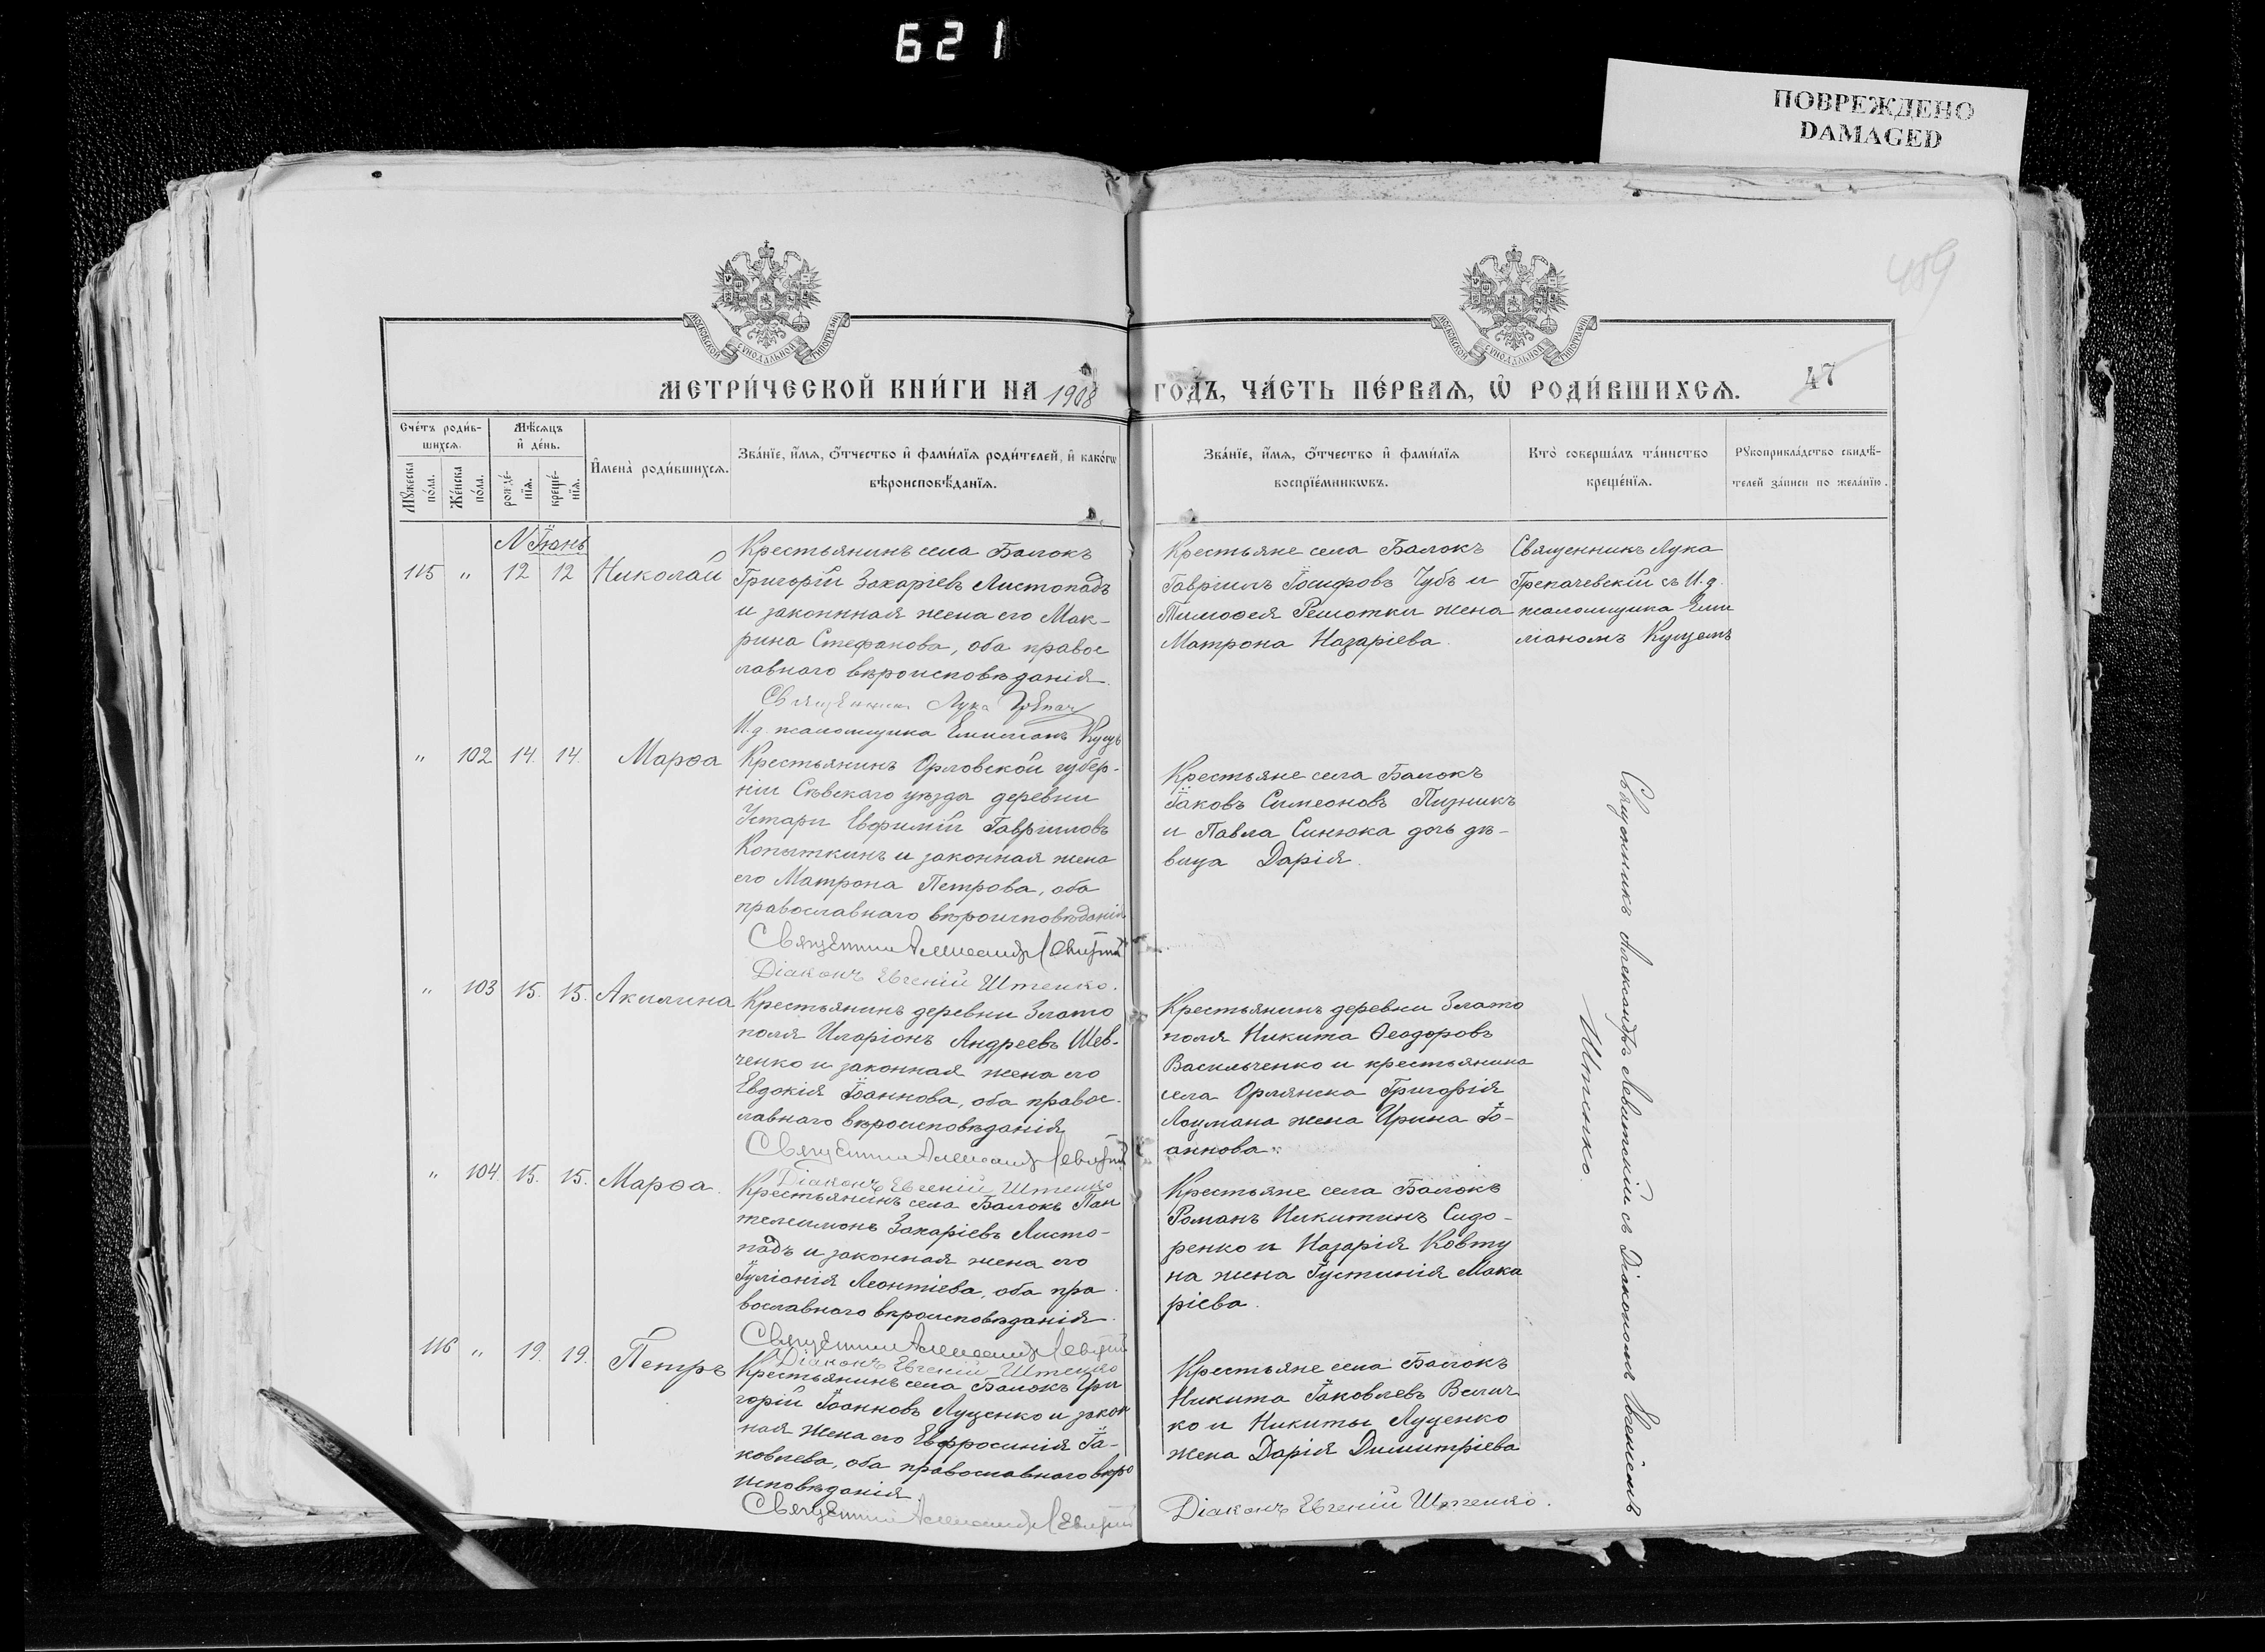 621
ПОВРЕЖДЕНО
DAMAGED
489
МОСКОВСКОЙ СѴНОДАЛЬНОЙ ТИПОГРАФІИ
МОСКОВСКОЙ СѴНОДАЛЬНОЙ ТИПОГРАФІИ
МЕТРИ́ЧЕСКОЙ КНИ́ГИ НА 1908 ГОДЪ, ЧА́СТЬ ПЕ́РВАЯ, Ѡ РОДИ́ВШИХСЯ.
47
Сче́тъ роди́в-
шихся.
Мѣ́сяцъ
и҆ де́нь.
Мꙋ́жеска
по́ла.
Же́нска
по́ла.
рожде́-
нїя.
креще́-
нїя.
И҆мена̀ роди́вшихся.
Зва́нїе, и҆́мя, ѻ҆́тчество и҆ фами́лїя роди́телей, и҆ како́гѡ
вѣроисповѣ́данїя.
Зва́нїе, и҆́мя, ѻ҆́тчество и҆ фами́лїя
воспрїе́мникѡвъ.
Кто̀ соверша́лъ та́инство
креще́нїя.
Рꙋкоприкла́дство свидѣ́-
телей за́писи по жела́нїю.
Іюнь
115 " 12 12 Николай
Крестьянинъ села Балокъ
Григорій Захаріевъ Листопадъ
и законнная жена его Мак-
рина Стефанова, оба правос
лавнаго вѣроисповѣданія.
Священникъ Лука Грепач
И.д. псаломщика Емиліанъ Кущъ
Крестьяне села Балокъ
Гавріилъ Іосифовъ Чубъ и
Тимоѳея Решотки жена
Матрона Назаріева.
Священникъ Лука
Грепачевскій съ И.д.
псаломщика Еми
ліаномъ Кущемъ
" 102 14. 14. Марѳа
Крестьянинъ Орловской губер-
ніи Сѣвскаго уѣзда деревни
Устари Евфимій Гавріиловъ
Копыткинъ и законная жена
его Матрона Петрова, оба
православнаго вѣроисповѣданія
Священникъ Александръ Левитскій
Діаконъ Евгеній Штенко.
Крестьяне села Балокъ
Іаковъ Симеоновъ Пизникъ
и Павла Синюка дочь дѣ-
вица Дарія.
Священникъ Александръ Левитскій съ Діакономъ Евгеніемъ
Штенко.
" 103 15. 15. Акилина
Крестьянинъ деревни Злато
поля Иларіонъ Андреевъ Шев-
ченко и законная жена его
Евдокія Іоаннова, оба правос-
лавнаго вѣроисповѣданія
Священникъ Александръ Левитскій
Діаконъ Евгеній Штенко
Крестьянинъ деревни Злато
поля Никита Ѳеодоровъ
Васильченко и крестьянина
села Орлянска Григорія
Лоцмана жена Ирина Іо-
аннова.
" 104 15. 15. Марѳа.
Крестьянинъ села Балокъ Пан
телеимонъ Захаріевъ Листо-
падъ и законная жена его
Іуліанія Леонтіева, оба пра
вославнаго вѣроисповѣданія.
Священникъ Александръ Левитскій
Діаконъ Евгеній Штенко
Крестьяне села Балокъ
Романъ Никитинъ Сидо-
ренко и Назарія Ковту
на жена Іустинія Мака
ріева.
116 " 19. 19. Петръ
Крестьянинъ села Балокъ Гри
горій Іоанновъ Луценко и закон
ная жена его Евфросинія Іа-
ковлева, оба православнаго вѣро
исповѣданія
Священникъ Александръ Левитскій
Крестьяне села Балокъ
Никита Іаковлевъ Велич
ко и Никиты Луценко
жена Дарія Димитріева
Діаконъ Евгеній Штенко.